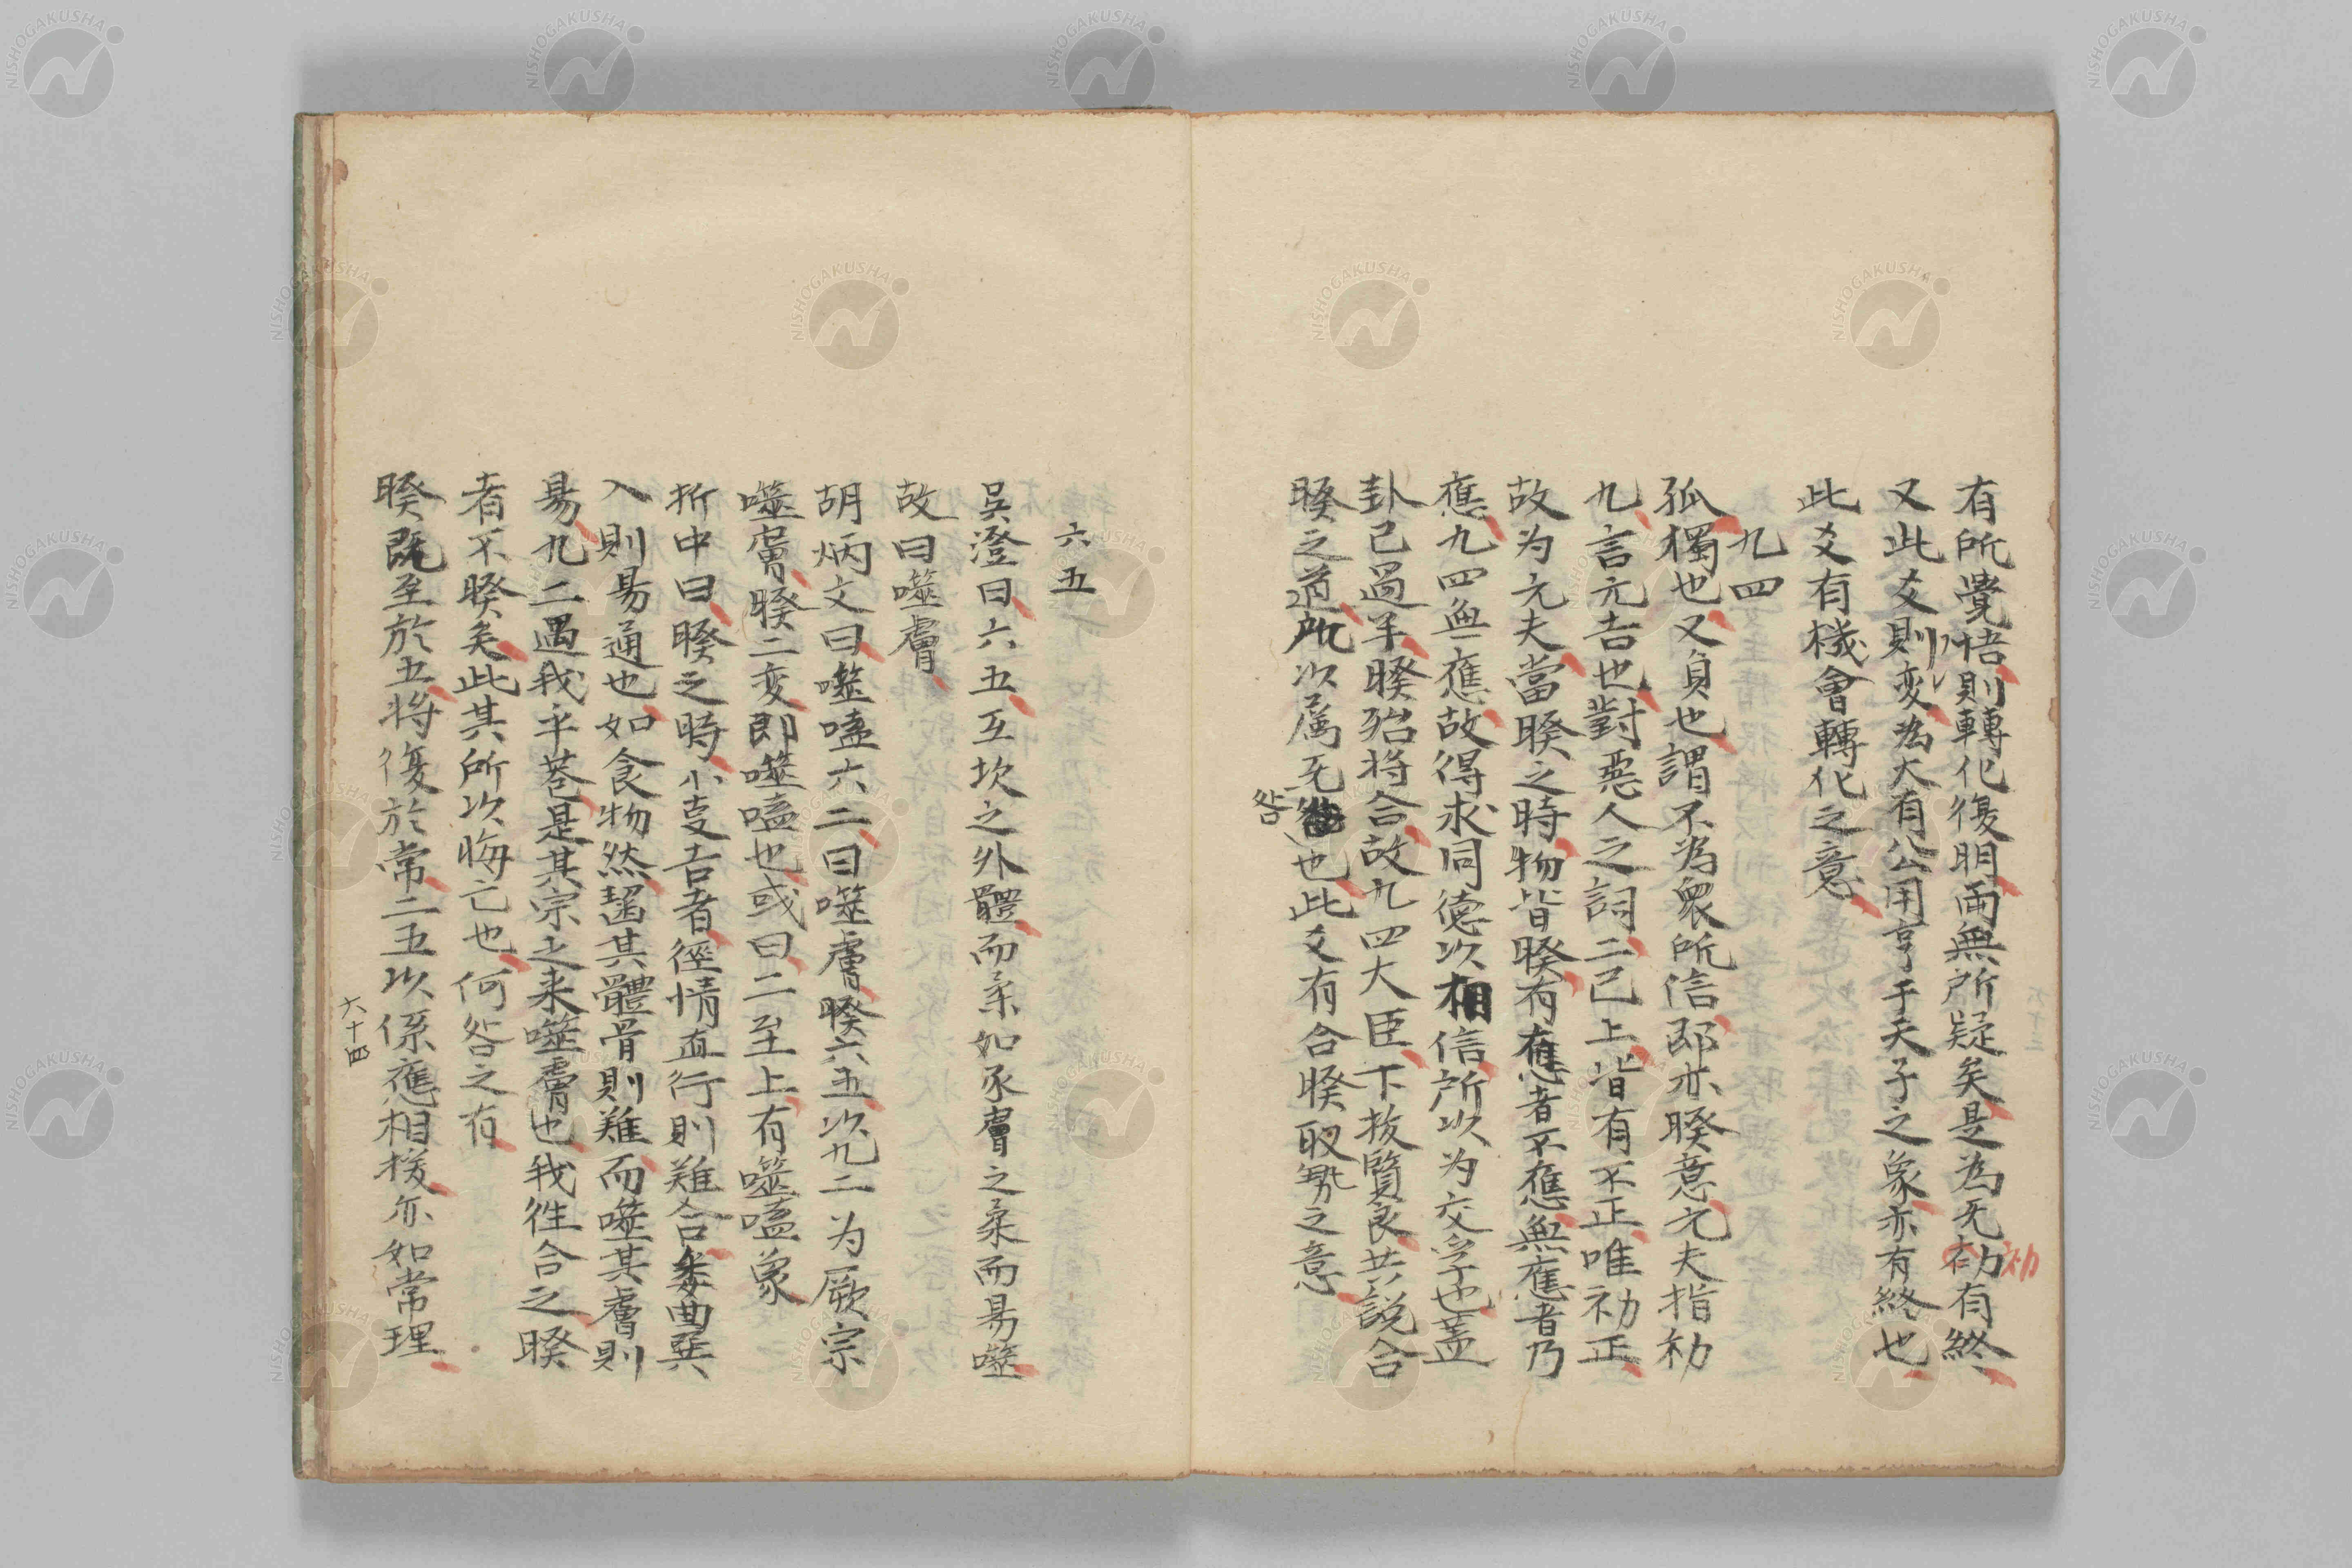 有所覺悟則轉化復明而無所疑矣是為无初有終
初
又此爻則変為大有公用亨于天子之象亦有終也
此爻有機會轉化之意
九四
孤獨也又負也謂不為衆所信郎亦睽意元夫指初
九言元吉也對惡人之詞二已上皆有不正唯初正
故为元夫當睽之時物皆睽有應者不應無應者乃
應九四無應故得求同德以相信所以为交孚也蓋
卦已過半睽殆将合故九四大臣下抜賢良共説合
睽之道所以属无也此爻有合睽取勢之意
咎
六五
吳澄曰六五互坎之外體而柔如豕膚之柔而易噬
故曰噬膚
胡炳文曰噬嗑六二曰噬膚睽六五以九二为厥宗
噬膚睽二変即噬嗑也或曰二至上有噬嗑象
折中曰睽之時小事吉者徑情直行則難合委曲巽
入則易通也如食物然齧其體骨則難而噬其膚則
易九二遇我乎巷是其宗之来噬膚也我徃合之睽
者不睽矣此其所以悔亡也何咎之有
睽既至於五将復於常二五以係應相援亦如常理
六十四
NISHOGAKUSHA